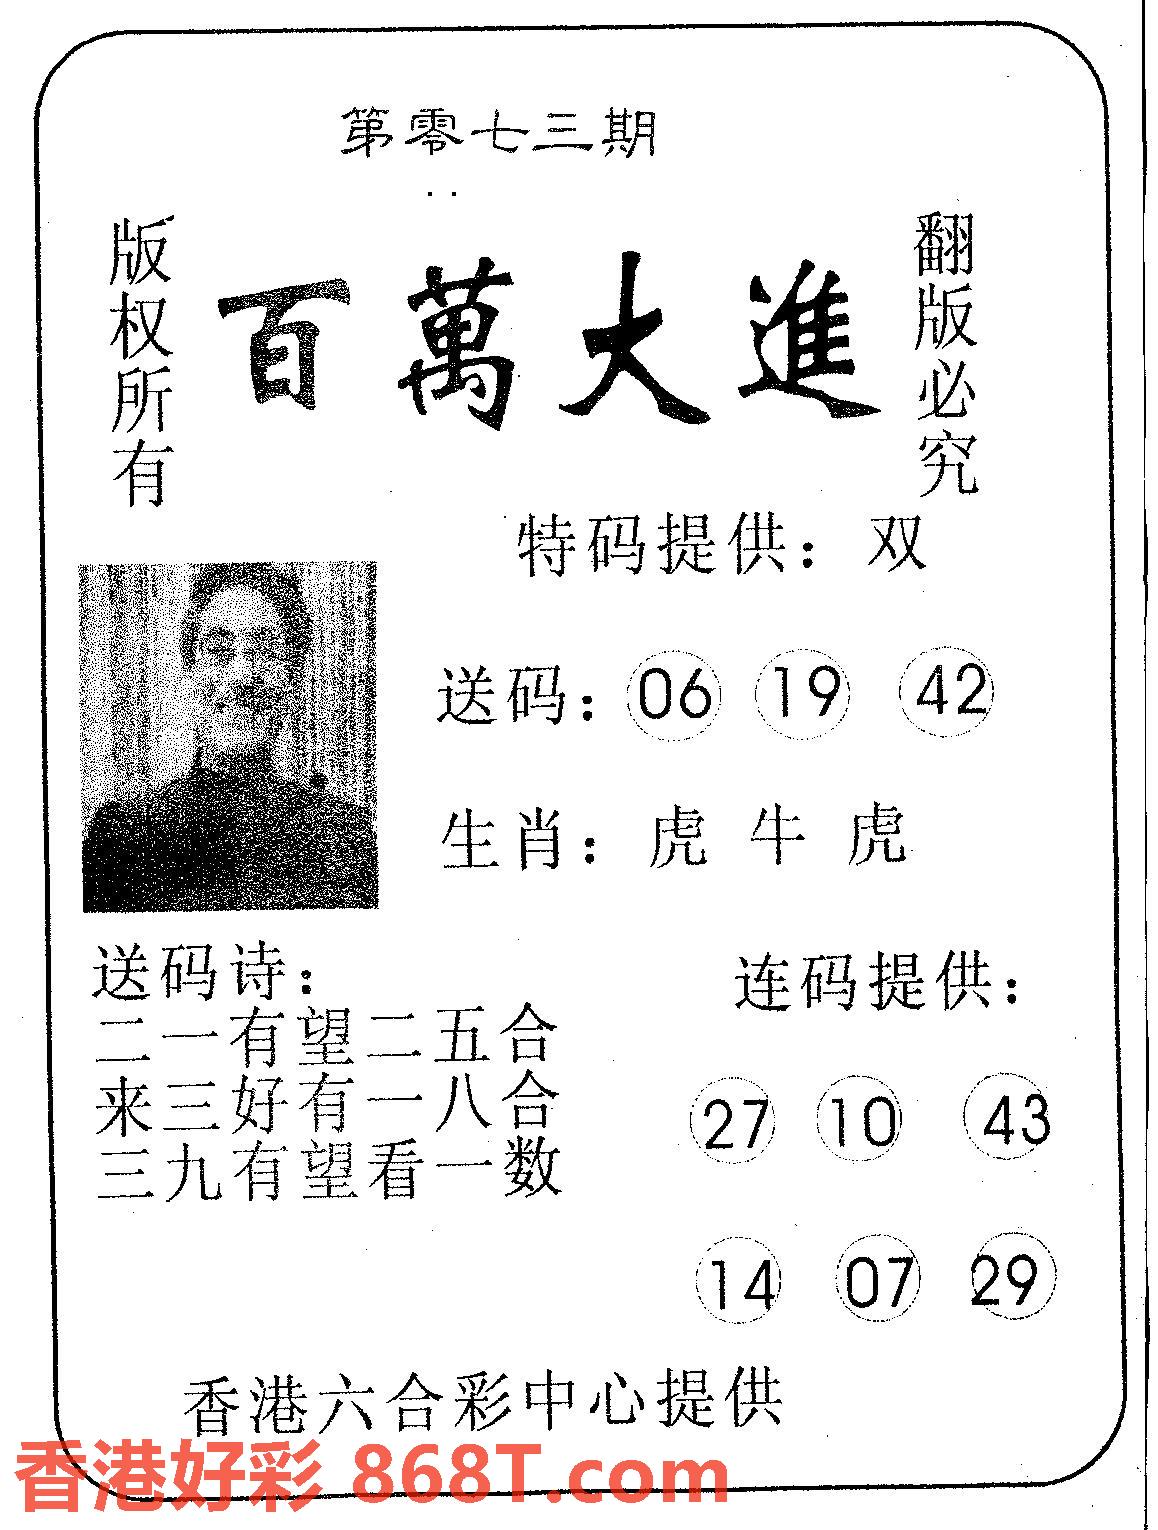 第零七三期
版权所有
百萬大進
翻版必究
特码提供：双
送码：06 19 42
生肖：虎 牛 虎
送码诗：
二一有望二五合
来三好有一八合
三九有望看一数
连码提供：
27 10 43
14 07 29
香港六合彩中心提供
香港好彩 868T.com